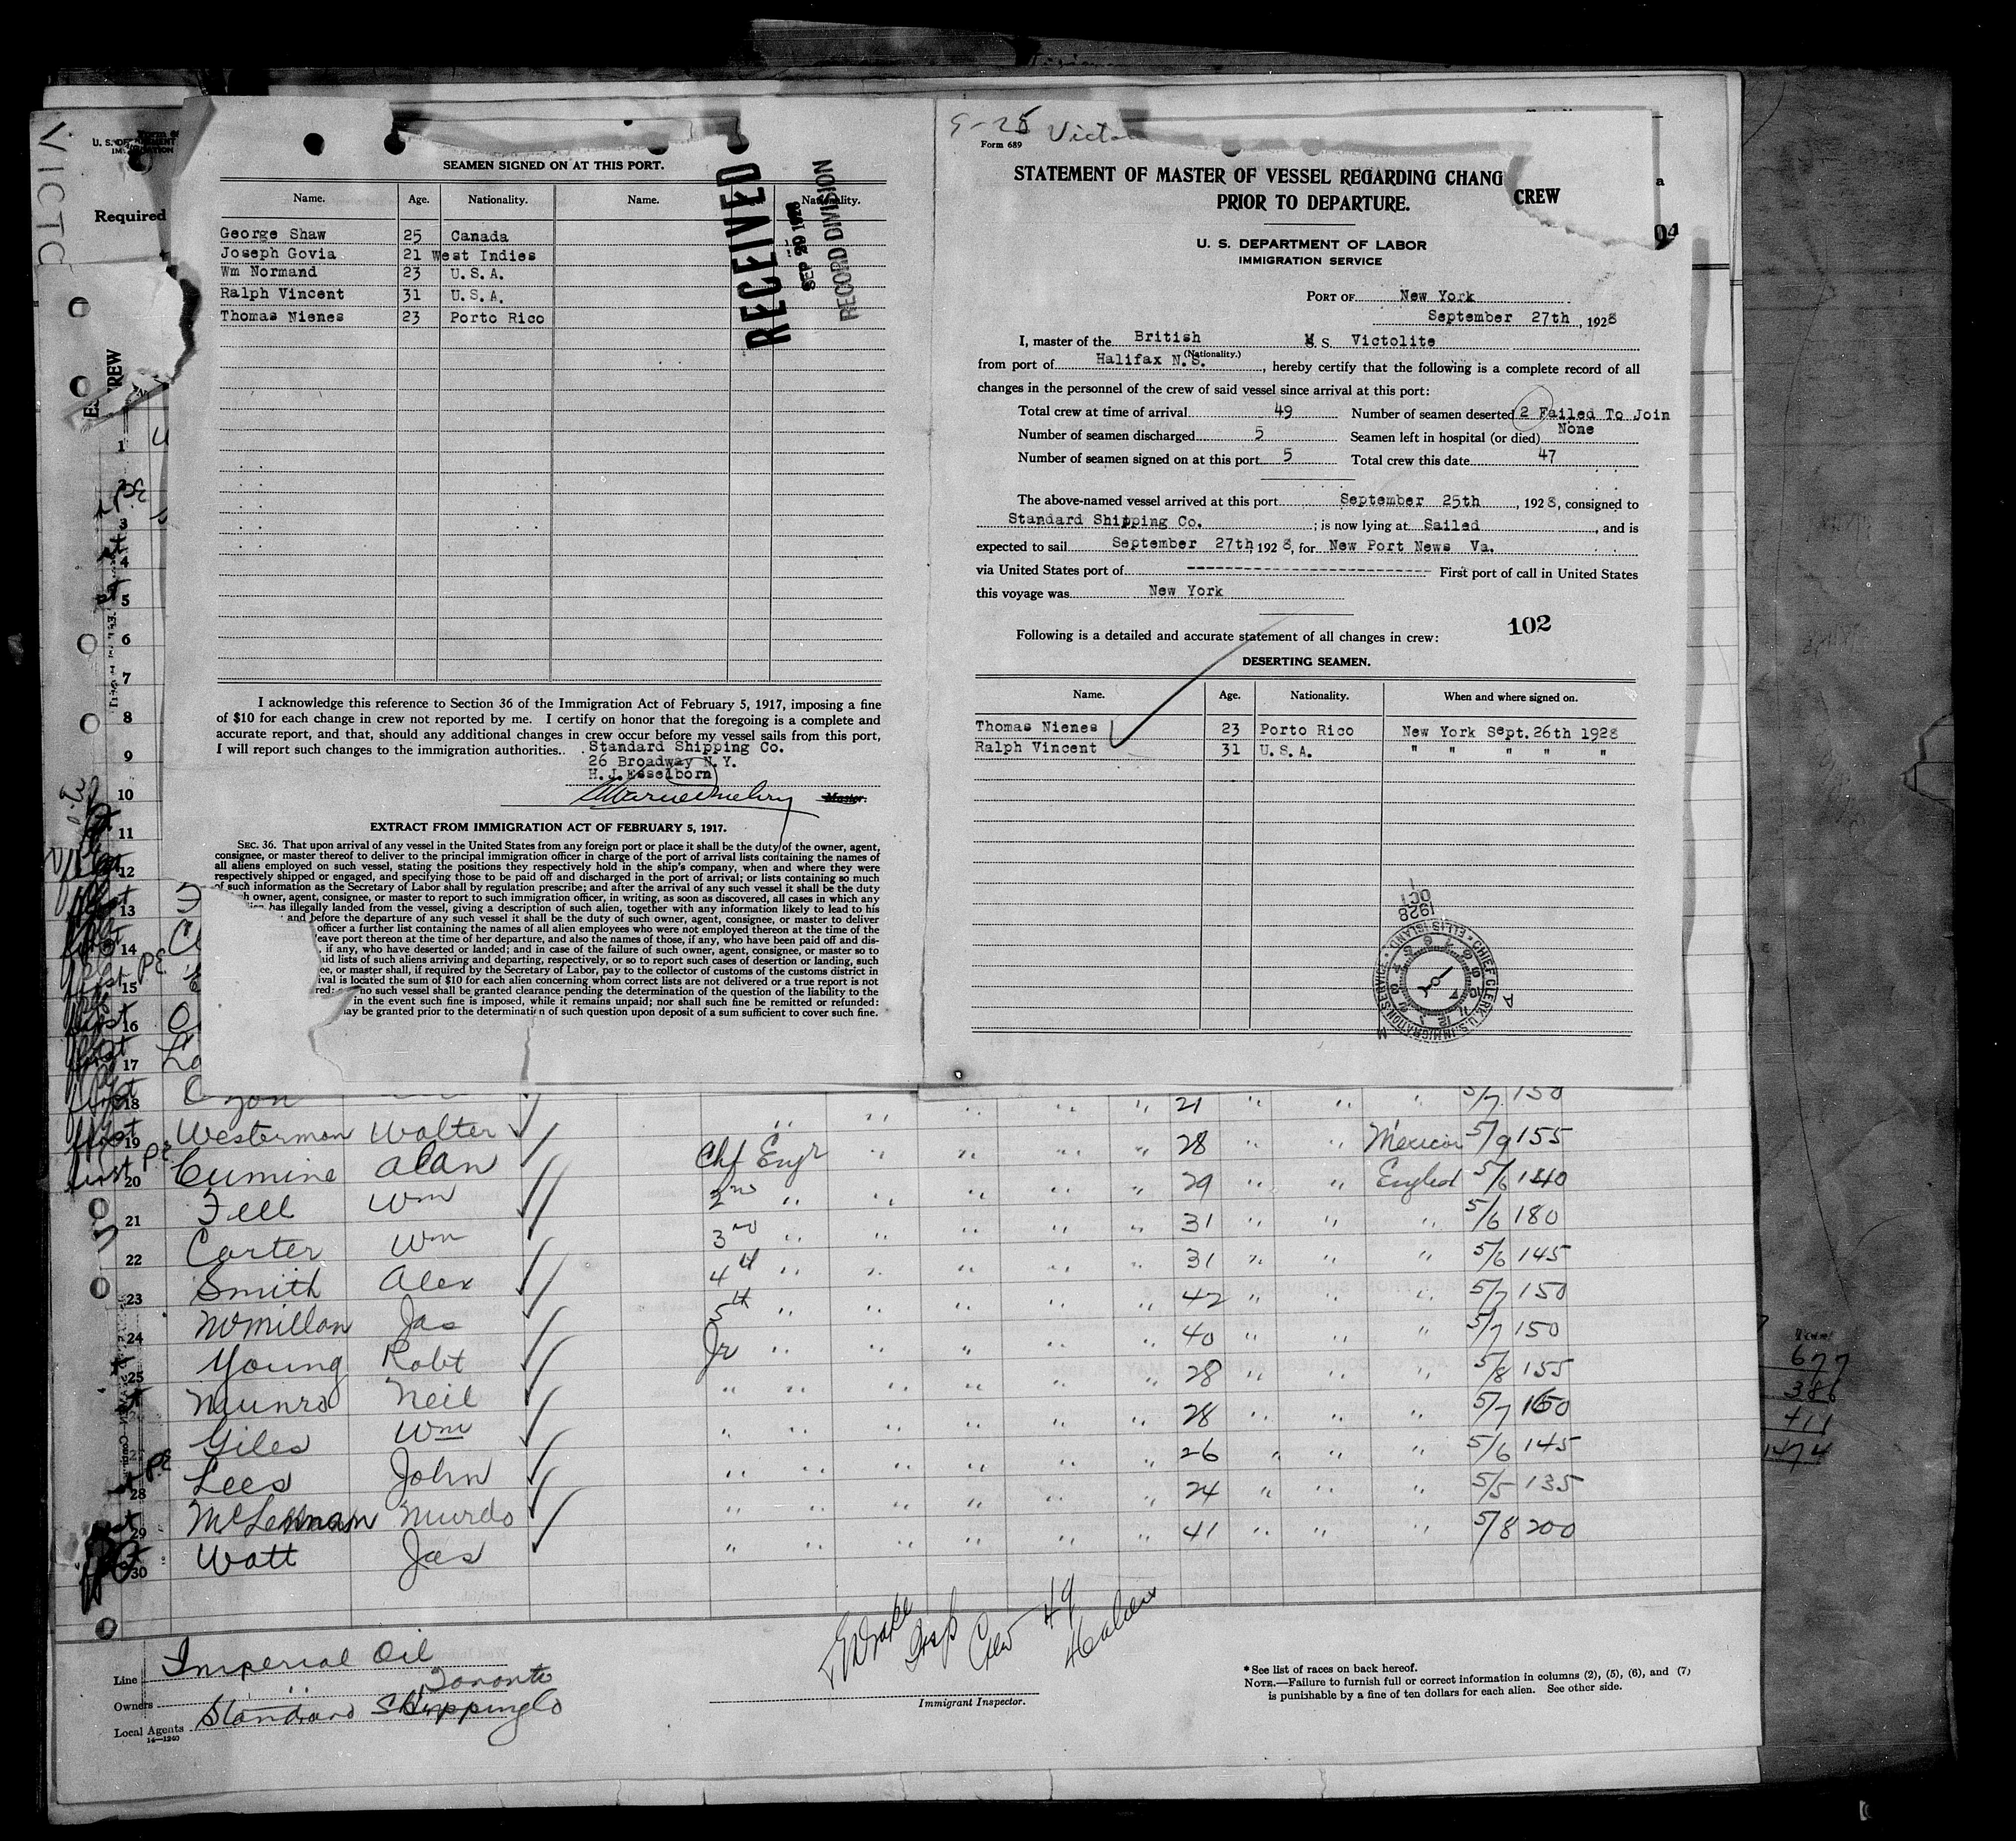 SEAMEN SIGNED ON AT THIS PORT.
Name. Age. Nationality. Name. Nationality.
George Shaw 25 Canada
Joseph Govia 21 West Indies
Wm Normand 23 U.S.A.
Ralph Vincent 31 U.S.A.
Thomas Nienes 23 Porto Rico
RECEIVED
SEP 20 1928
RECORD DIVISION
I acknowledge this reference to Section 36 of the Immigration Act of February 5, 1917, imposing a fine
of $10 for each change in crew not reported by me. I certify on honor that the foregoing is a complete and
accurate report, and that, should any additional changes in crew occur before my vessel sails from this port,
I will report such changes to the immigration authorities.
Standard Shipping Co.
26 Broadway N.Y.
H.J.Esselborn
Master.
EXTRACT FROM IMMIGRATION ACT OF FEBRUARY 5, 1917.
SEC. 36. That upon arrival of any vessel in the United States from any foreign port or place it shall be the duty of the owner, agent,
consignee, or master thereof to deliver to the principal immigration officer in charge of the port of arrival lists containing the names of
all aliens employed on such vessel, stating the positions they respectively hold in the ship's company, when and where they were
respectively shipped or engaged, and specifying those to be paid off and discharged in the port of arrival; or lists containing so much
of such information as the Secretary of Labor shall by regulation prescribe; and after the arrival of any such vessel it shall be the duty
owner, agent, consignee, or master to report to such immigration officer, in writing, as soon as discovered, all cases in which any
has illegally landed from the vessel, giving a description of such alien, together with any information likely to lead to his
and before the departure of any such vessel it shall be the duty of such owner, agent, consignee, or master to deliver
officer a further list containing the names of all alien employees who were not employed thereon at the time of the
eave port thereon at the time of her departure, and also the names of those, if any, who have been paid off and dis-
if any, who have deserted or landed; and in case of the failure of such owner, agent, consignee, or master so to
aid lists of such aliens arriving and departing, respectively, or so to report such cases of desertion or landing, such
ee, or master shall, if required by the Secretary of Labor, pay to the collector of customs of the customs district in
ival is located the sum of $10 for each alien concerning whom correct lists are not delivered or a true report is not
red: no such vessel shall be granted clearance pending the determination of the question of the liability to the
in the event such fine is imposed, while it remains unpaid; nor shall such fine be remitted or refunded:
ay be granted prior to the determination of such question upon deposit of a sum sufficient to cover such fine.
9-25 Victo
Form 689
STATEMENT OF MASTER OF VESSEL REGARDING CHANG CREW
PRIOR TO DEPARTURE.
U. S. DEPARTMENT OF LABOR
IMMIGRATION SERVICE
PORT OF New York
September 27th, 1928
I, master of the British M S Victolite
(Nationality.)
from port of Halifax N.S., hereby certify that the following is a complete record of all
changes in the personnel of the crew of said vessel since arrival at this port:
Total crew at time of arrival 49 Number of seamen deserted 2 Failed To Join
Number of seamen discharged 5 Seamen left in hospital (or died) None
Number of seamen signed on at this port 5 Total crew this date 47
The above-named vessel arrived at this port September 25th, 1928, consigned to
Standard Shipping Co.; is now lying at Sailed, and is
expected to sail September 27th 1928, for New Port News Va.
via United States port of ---------- First port of call in United States
this voyage was New York
102
Following is a detailed and accurate statement of all changes in crew:
DESERTING SEAMEN.
Name. Age. Nationality. When and where signed on.
Thomas Nienes 23 Porto Rico New York Sept. 26th 1928
Ralph Vincent 31 U.S.A. " " " " "
1928
OCT
CHIEF CLERK, U.S. IMMIGRATION SERVICE · ELLIS ISLAND
Required
18 21 " " " 5/7 150
19 Westerman Walter " 28 " " Mexican 5/9 155
20 Cumine Alan Chf Engr " 29 " " Engld 5/6 140
21 Fell Wm 2nd " 31 " " " 5/6 180
22 Carter Wm 3rd " 31 " " " 5/6 145
23 Smith Alex 4th " 42 " " " 5/7 150
24 McMillan Jas 5th " 40 " " " 5/7 150
25 Young Robt Jr " 28 " " " 5/8 155
Munro Neil " " 28 " " " 5/7 160
Giles Wm " " 26 " " " 5/6 145
28 Lees John " " 24 " " " 5/5 135
29 McLennan Murdo " " 41 " " " 5/8 200
30 Watt Jas " "
Crew 49
Line Imperial Oil
Owners " " Toronto
Local Agents Standard Shipping Co
14—1240
Immigrant Inspector.
* See list of races on back hereof.
NOTE.—Failure to furnish full or correct information in columns (2), (5), (6), and (7)
is punishable by a fine of ten dollars for each alien. See other side.
677
386
411
1474